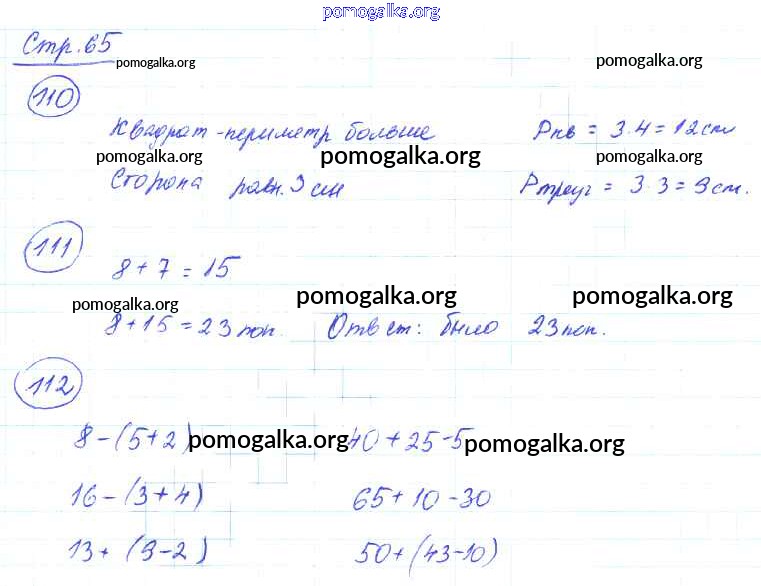 pomogalka.org
Стр. 65
pomogalka.org pomogalka.org
110
Квадрат - периметр больше Pкв = 3·4 = 12 см
pomogalka.org pomogalka.org pomogalka.org
Сторона равн. 3 см Pтреуг = 3·3 = 9 см.
111
8 + 7 = 15
pomogalka.org pomogalka.org pomogalka.org
8 + 15 = 23 Ответ: было 23
112
8 - (5 + 2) pomogalka.org 40 + 25 - 5 pomogalka.org
16 - (3 + 4) 65 + 10 - 30
13 + (9 - 2) 50 + (43 - 10)